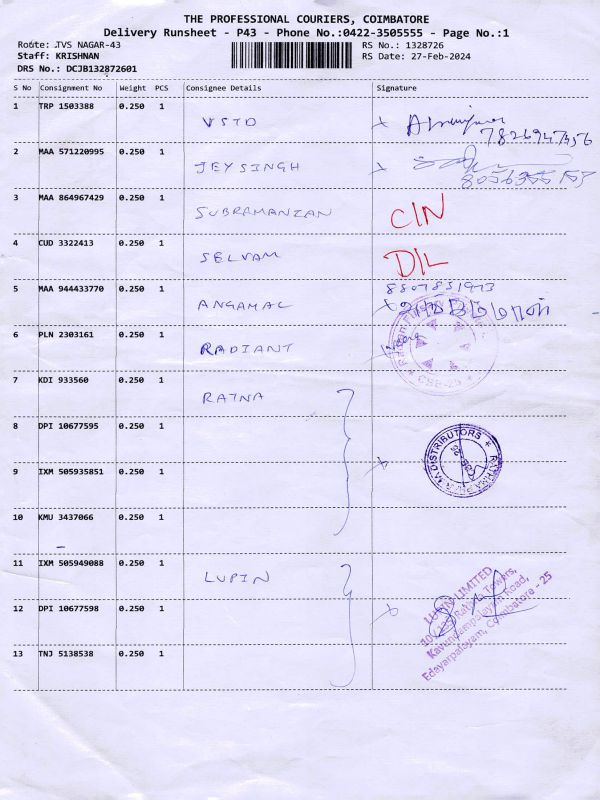 THE PROFESSIONAL COURIERS, COIMBATORE
Delivery Runsheet - P43 - Phone No.:0422-3505555 - Page No.:1
Route: TVS NAGAR-43 RS No.: 1328726
Staff: KRISHNAN RS Date: 27-Feb-2024
DRS No.: DCJB132872601
S No Consignment No Weight PCS Consignee Details Signature
1 TRP 1503388 0.250 1 VSTD
2 MAA 571220995 0.250 1 JEYSINGH
3 MAA 864967429 0.250 1 SUBRAMANIAN C/N
4 CUD 3322413 0.250 1 SELVAM D/L
5 MAA 944433770 0.250 1 ANGAMAL 8807851973
6 PLN 2303161 0.250 1 RADIANT
CBE-25
7 KDI 933560 0.250 1 RATNA
8 DPI 10677595 0.250 1
DISTRIBUTORS
9 IXM 505935851 0.250 1
10 KMU 3437066 0.250 1
11 IXM 505949088 0.250 1 LUPIN
12 DPI 10677598 0.250 1
13 TNJ 5138538 0.250 1
LUPIN LIMITED
Kavundampalayam Road,
Edayarpalayam, Coimbatore - 25